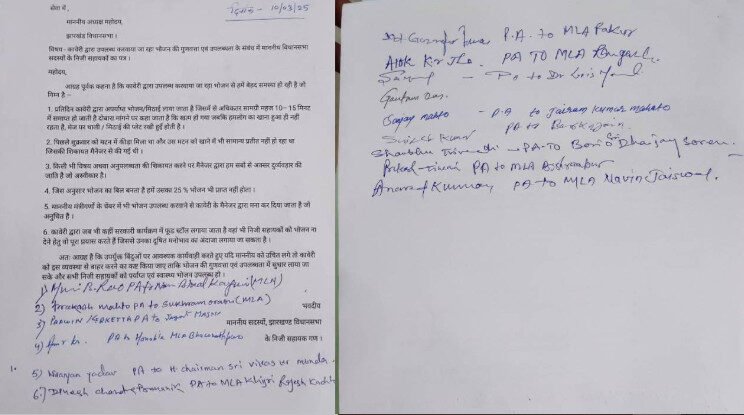 सेवा में,
दिनांक - 10/03/25
माननीय अध्यक्ष महोदय,
झारखण्ड विधानसभा।
विषय- कावेरी द्वारा उपलब्ध करवाया जा रहा भोजन की गुणवत्ता एवं उपलब्धता के संबंध में माननीय विधानसभा
सदस्यों के निजी सहायकों का पत्र।
महोदय,
आग्रह पूर्वक कहना है कि कावेरी द्वारा उपलब्ध करवाया जा रहा भोजन से हमे बेहद समस्या हो रही है जो
निम्न है :-
1. प्रतिदिन कावेरी द्वारा अपर्याप्त भोजन/मिठाई लाया जाता है जिसमें से अधिकतर सामग्री महज 10– 15 मिनट
में समाप्त हो जाती है दोबारा मांगने पर कहा जाता है कि खत्म हो गया जबकि हमलोग का खाना हुआ ही नहीं
रहता है, मेज पर भाजी / मिठाई की प्लेट रखी हुई होती है।
2. पिछले शुक्रवार को मटन में कीड़ा मिला था और उस मटन को खाने में भी सामान्य प्रतीत नहीं हो रहा था
जिसकी शिकायत मैनेजर से की गई थी।
3. किसी भी विषय अथवा अनुपलब्धता की शिकायत करने पर मैनेजर द्वारा हम सबों से अक्सर दुर्व्यवहार की
जाति है जो अस्वीकार है।
4. जिस अनुसार भोजन का बिल बनता है हमें उसका 25 % भोजन भी प्राप्त नहीं होता।
5. माननीय मंत्रीगणों के चेंबर में भी भोजन उपलब्ध करवाने से कावेरी के मैनेजर द्वारा मना कर दिया जाता है जो
अनुचित है।
6. कावेरी द्वारा जब भी कहीं सरकारी कार्यक्रम में फूड स्टॉल लगाया जाता है वहां भी निजी सहायकों को भोजन ना
देने हेतु वो पूरा प्रयास करते हैं जिससे उनका दूषित मनोभाव का अंदाजा लगाया जा सकता है।
अतः आग्रह है कि उपर्युक्त बिंदुओं पर आवश्यक कार्यवाही करते हुए यदि माननीय को उचित लगे तो कावेरी
को इस व्यवस्था से बाहर करने का कष्ट किया जाए ताकि भोजन की गुणवत्ता एवं उपलब्धता में सुधार लाया जा
सके और सभी निजी सहायकों को पर्याप्त एवं स्वास्थ्य भोजन उपलब्ध हो।
1) PA to (MLA)
2) Prakash mahto PA to Sukhram oraon (MLA)
भवदीय
3) PARWIN KERKETTA PA to
माननीय सदस्यों, झारखण्ड विधानसभा
4) PA to Honable MLA
के निजी सहायक गण।
5) Narayan yadav PA to H chairman Sri vikas kr munda
6) Dinesh chandra Pramanik PA to MLA Khijri Rajesh
P.A. to MLA Pakur
Alok Kr Jha PA TO MLA
to Dr
Gautam
Sanjay mahto - P.A to Jairam Kumar mahato
PA to
Shambhu - PA-TO Borio Dhananjay Soren.
PA to MLA
Anand Kumar PA to MLA Navin Jaiswal.